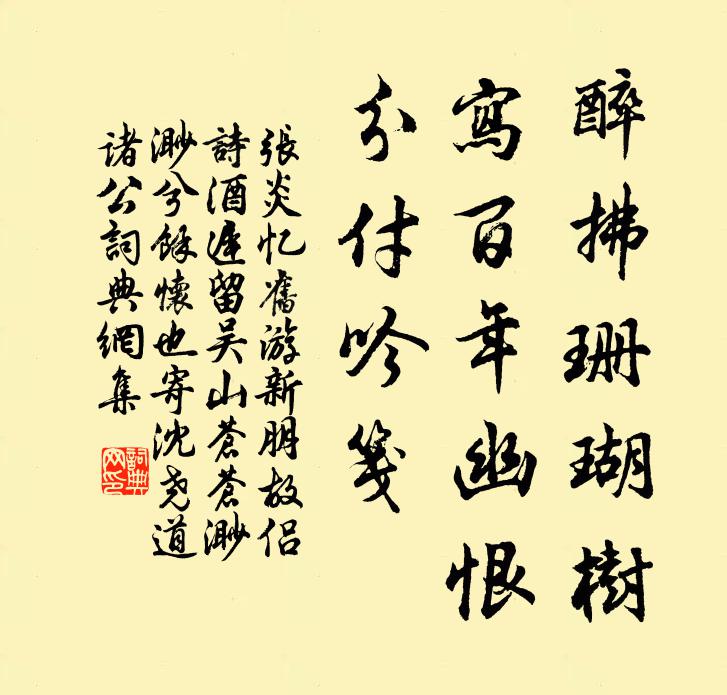 醉拂珊瑚樹
寫百年幽恨
分付吟箋
張炎忆舊游新朋故侣
詩酒遲留吴山蒼蒼渺
渺兮餘懷也寄沈堯道
诸公詞典網集
詞典
网印